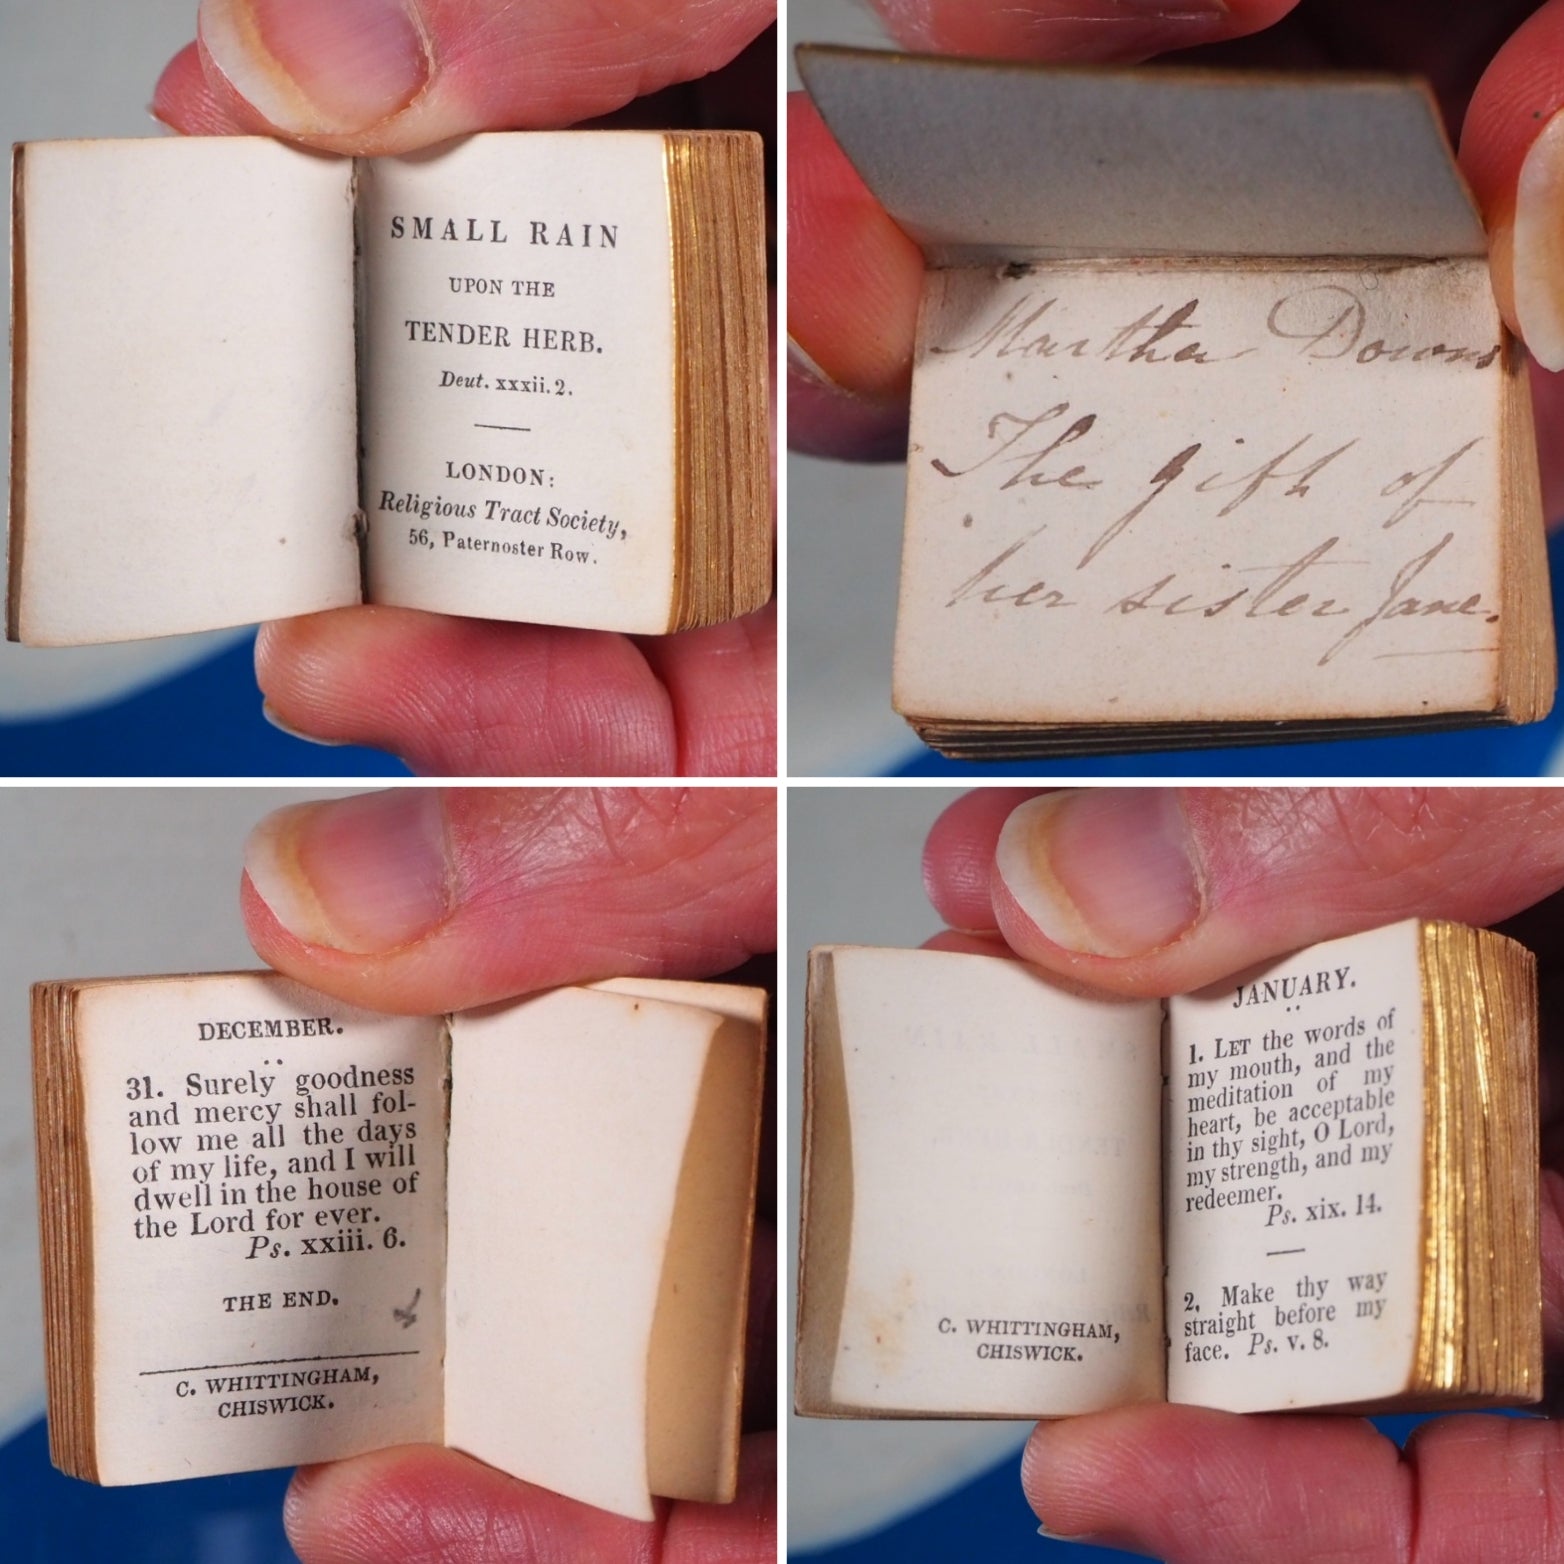 SMALL RAIN
UPON THE
TENDER HERB.
Deut. xxxii. 2.
LONDON:
Religious Tract Society,
56, Paternoster Row.
Martha Downs
The gift of
her sister Jane.
DECEMBER.
31. Surely goodness
and mercy shall fol-
low me all the days
of my life, and I will
dwell in the house of
the Lord for ever.
Ps. xxiii. 6.
THE END.
C. WHITTINGHAM,
CHISWICK.
C. WHITTINGHAM,
CHISWICK.
JANUARY.
1. LET the words of
my mouth, and the
meditation of my
heart, be acceptable
in thy sight, O Lord,
my strength, and my
redeemer.
Ps. xix. 14.
2. Make thy way
straight before my
face. Ps. v. 8.